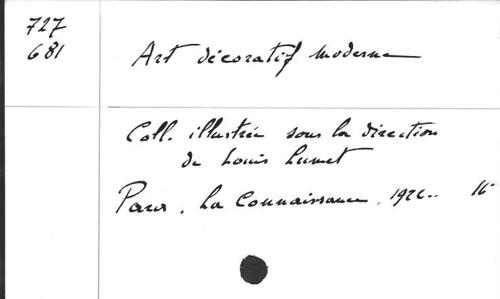 727
681
Art décoratif moderne
Coll. illustrée sous la direction
de Louis Lumet
Paris, La Connaissance, 192.. 16°